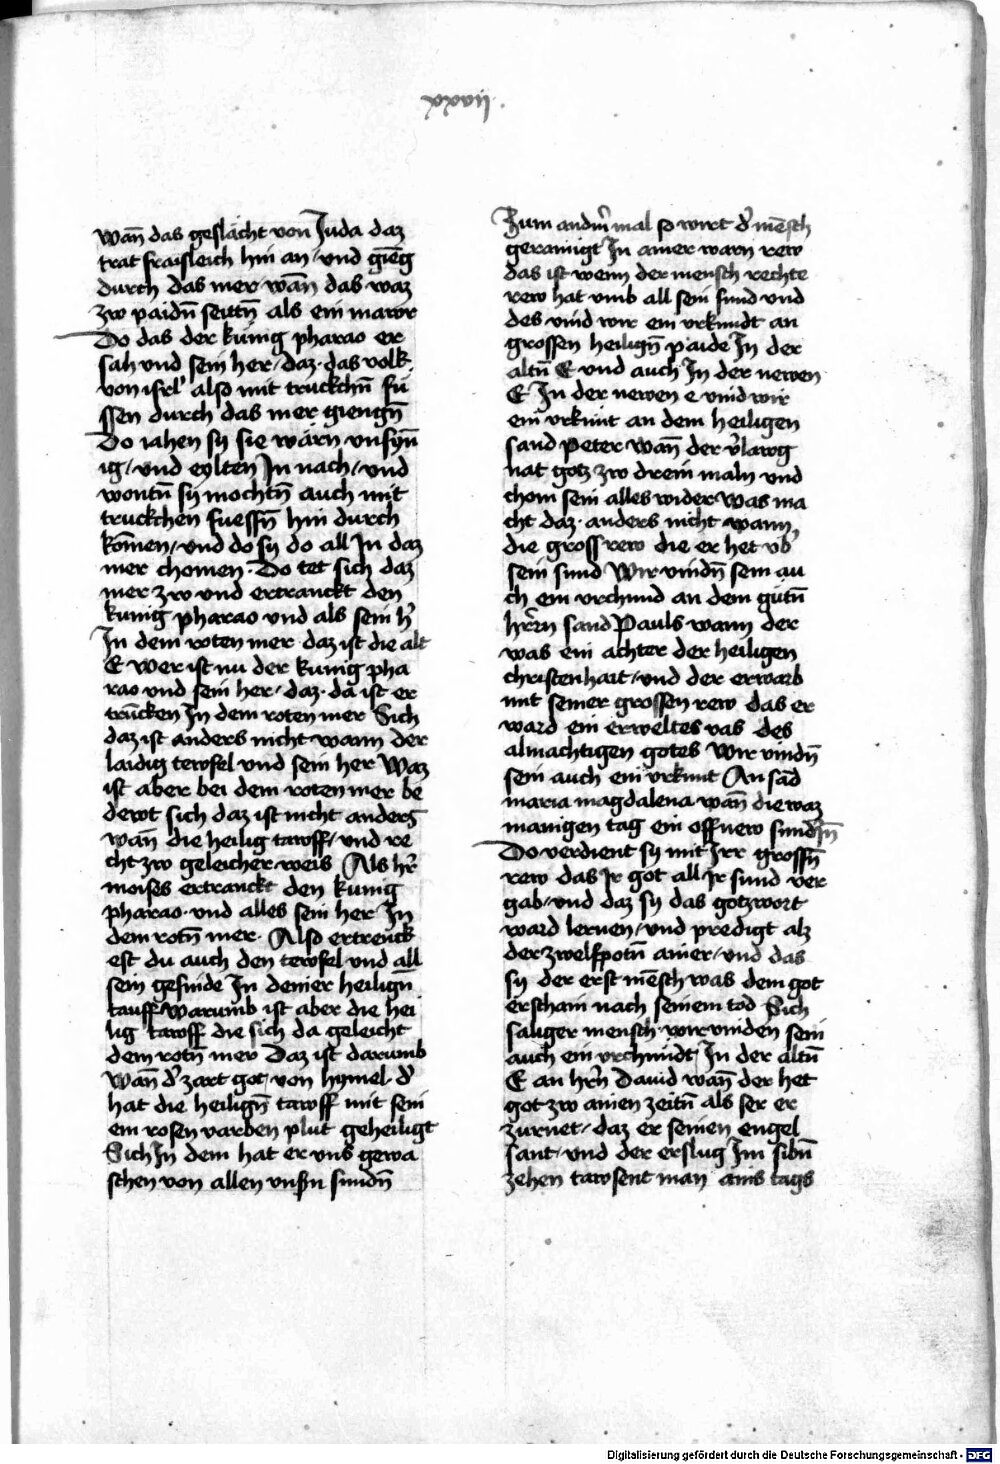 xxvij.
wañ das geslächt von Juda daz
trat fraisleich hin an / vnd gieng
durch das mer / wañ das waz
zw paidñ seittñ als ein mawr
Do das der kůnig pharao er
sah vnd sein her / daz das volk
von isrl' also mit truckchñ fu
ssen durch das mer giengñ
Do iahen sy sie wärn vnsyñ
ig / vnd eylten Jn nach / vnd
wontñ sy mochtñ auch mit
truckchen fuessñ hin durch
komen / vnd do sy do all Jn daz
mer chomen · Do tet sich daz
mer zw vnd ertranckt den
kunig pharao vnd als sein h'
Jn dem roten mer daz ist die alt
E wer ist nu der kunig pha
rao vnd sein her / daz da ist er
trūcken Jn dem roten mer Sich
daz ist anders nicht wann der
laidig tewfel vnd sein her Waz
ist aber bei dem roten mer be
dewt sich daz ist nicht anders
wañ die heilig tawff / vnd re
cht zw geleicher weis Als h'r
moises ertranckt den kunig
pharao · vnd alles sein her Jn
dem rotñ mer · Also ertrenck
est du auch den tewfel vnd all
sein gesinde Jn deiner heiligñ
tauff Warumb ist aber die hei
lig tawff die sich da geleicht
dem rotñ mer Daz ist darumb
Wañ d' zart got / von hymel d'
hat die heiligñ tawff mit sein
em rosen varben plut geheiligt
Sich Jn dem hat er vns gewa
schen von allen vnsñ sundñ
Zum andm̃ mal so wirt d' mēsch
gerainigt Jn ainer warn rew
das ist wenn der mensch rechte
rew hat vmb all sein sund vnd
des vind wir ein vrkundt an
grossen heiligñ paide Jn der
altñ E vnd auch Jn der newen
E Jn der newen e vind wir
ein vrkunt an dem heiligen
sand peter wañ der v'lawg
nat gotz zw drein maln vnd
chom sein alles wider Was ma
cht daz · anders nicht wann
die gross rew die er het vb'
sein sund Wir vindñ sein au
ch ein vrchund an dem gutñ
hr̃rn sand Pauls wann der
was ein achter der heiligen
christenhait / vnd der erwarb
mit seiner grossen rew das er
ward ein erweltes vas des
almachtigen gotes Wir vindñ
sein auch ein vrkunt An sād
maria magdalena wañ die waz
manigen tag ein offnew sundr̃ĩn
Do verdient sy mit Jrr grossñ
rew das Jr got all Jr sund ver
gab / vnd daz sy das gotzwort
ward lernen / vnd predigt alz
der zwelfpotñ ainer / vnd das
sy der erst mēsch was dem got
erschain nach seinem tod Sich
saliger mensch · wir vinden sein
auch ein vrchundt Jn der altñ
E an hr̃n Dauid wañ der het
got zw ainen zeitñ als ser er
zurnet / daz er seinen engel
sant / vnd der erslug Jm sibñ
zehen tawsent man ains tags
Digitalisierung gefördert durch die Deutsche Forschungsgemeinschaft - DFG